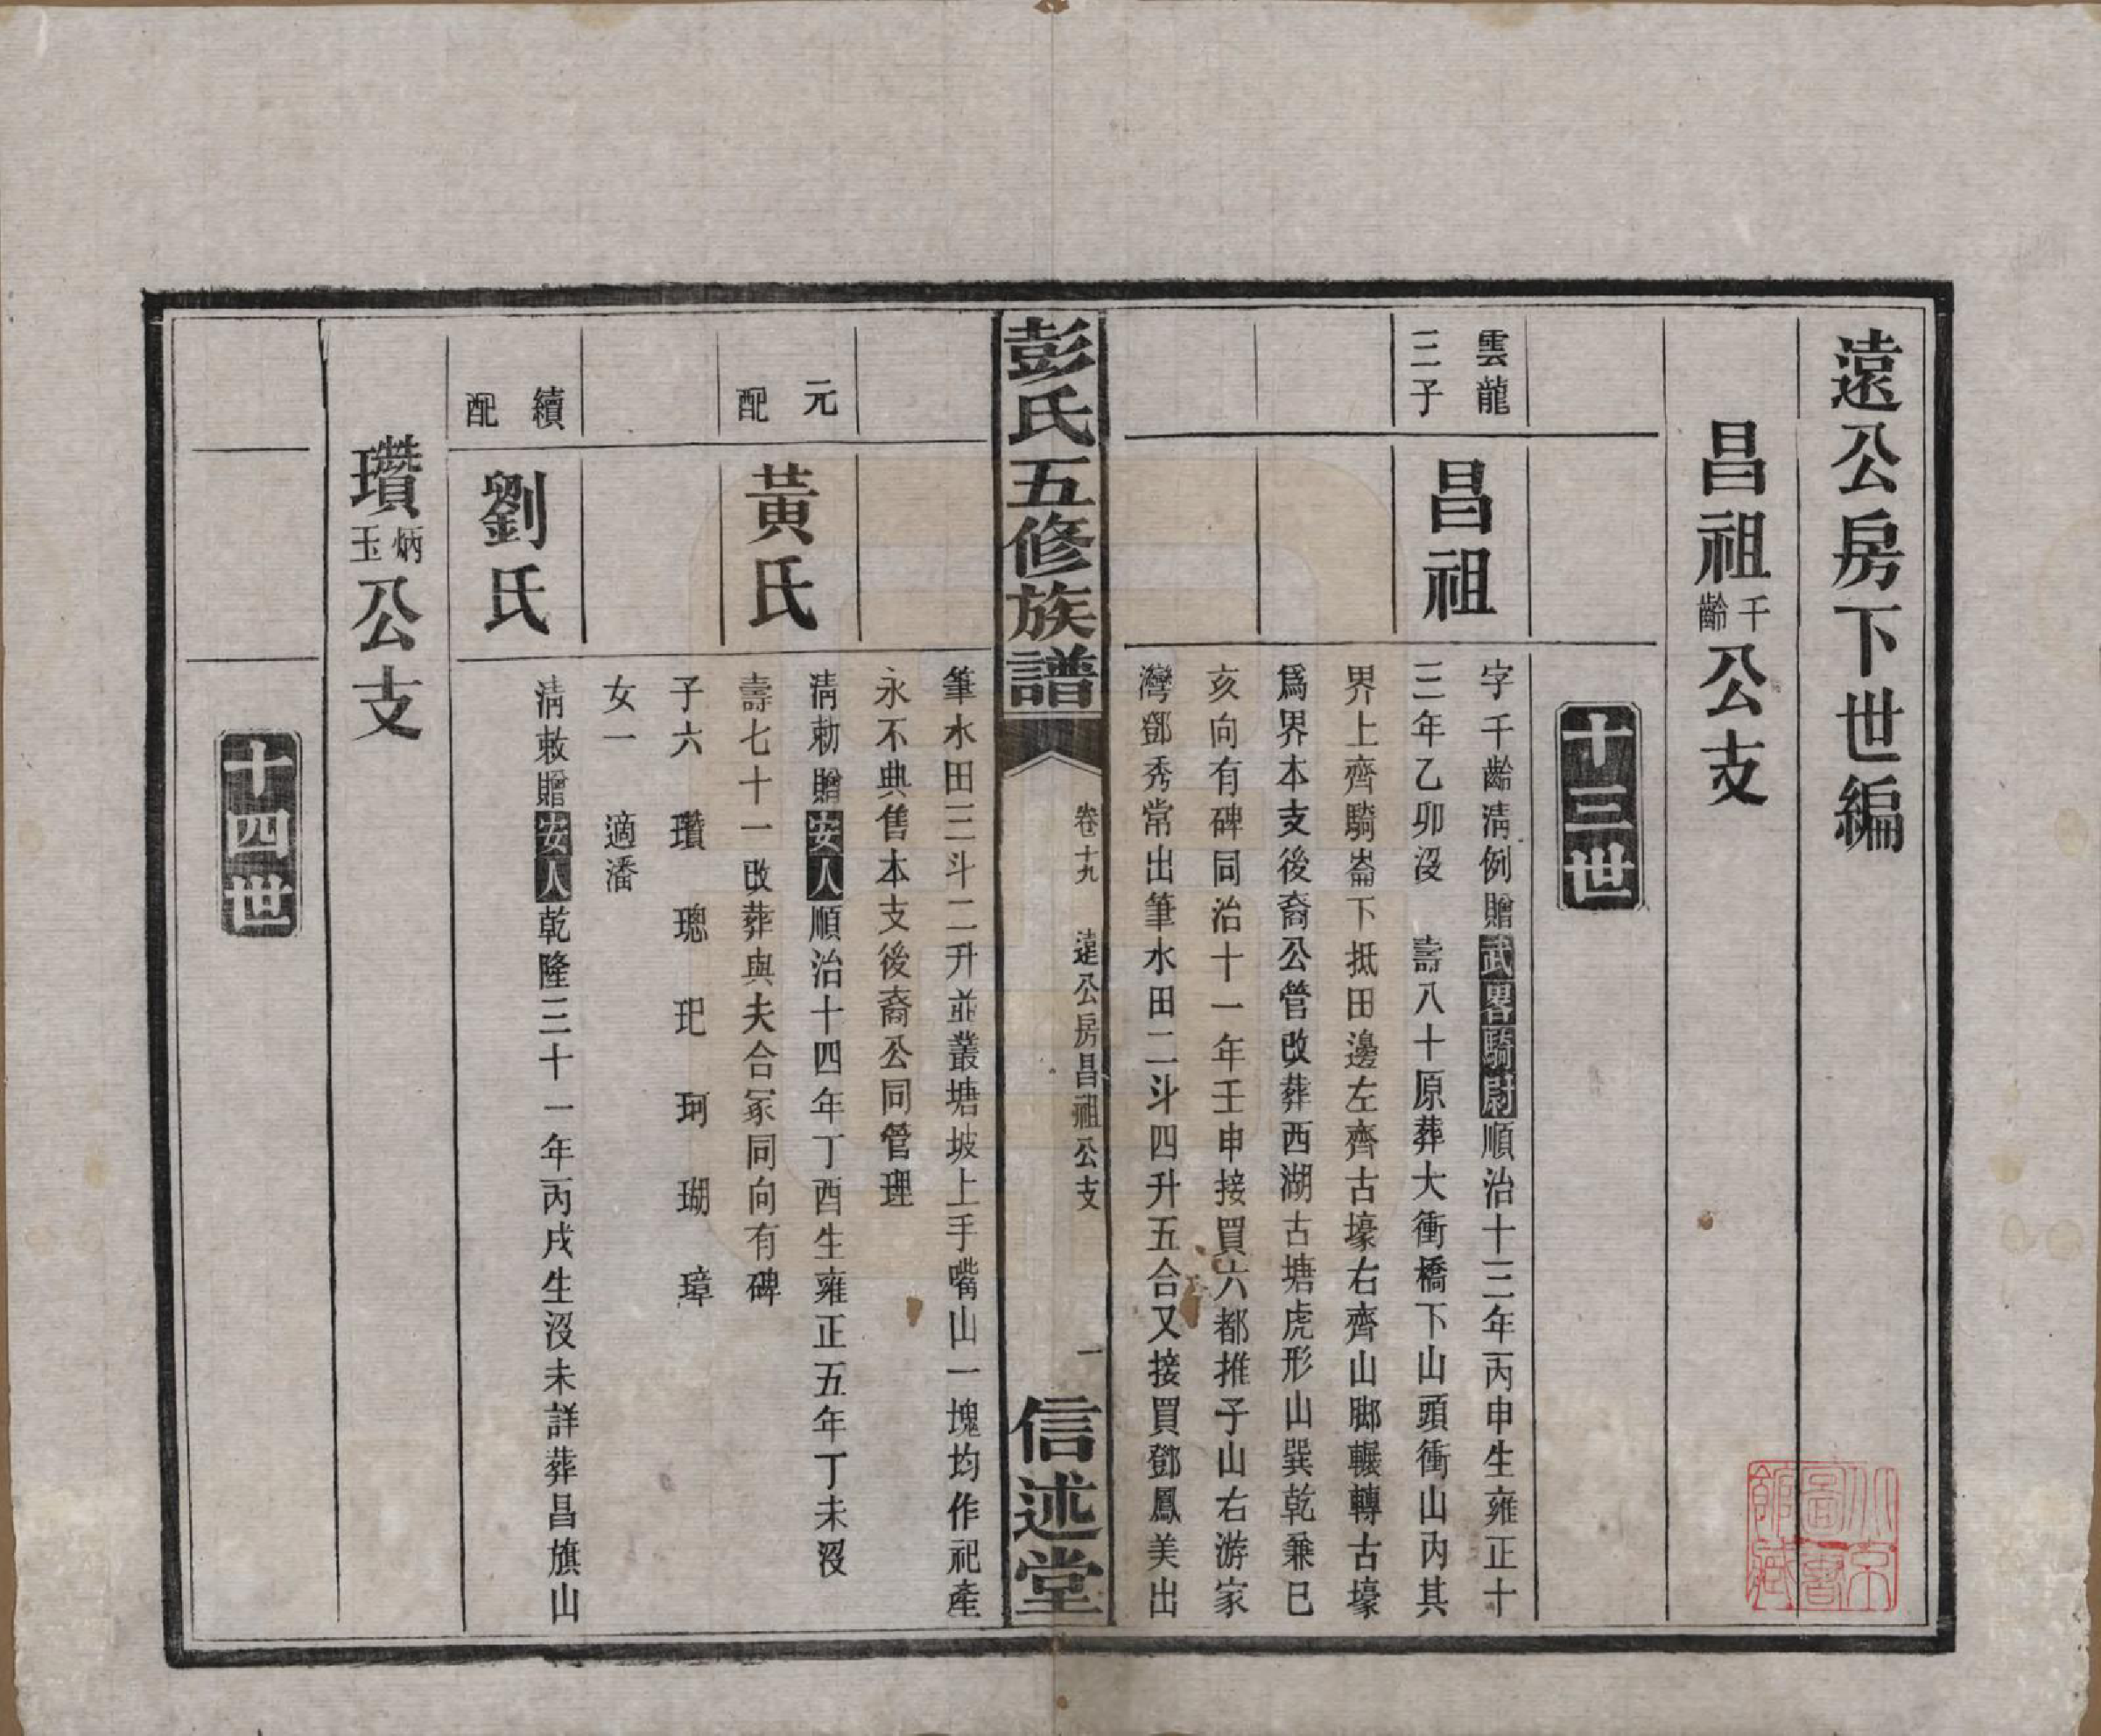 遠公房下世編
昌祖千齡公支
十三世
雲龍
三子
昌祖
字千齡清例贈武畧騎尉順治十三年丙申生雍正十
三年乙卯沒 壽八十原葬大衝橋下山頭衝山內其
界上齊騎崙下抵田邊左齊古壕右齊山脚輾轉古壕
爲界本支後裔公管改葬西湖古塘虎形山巽乾兼巳
亥向有碑同治十一年壬申接買六都推子山右游家
灣鄧秀常出筆水田二斗四升五合又接買鄧鳳美出
彭氏五修族譜
卷十九 遠公房昌祖公支
一
信述堂
筆水田三斗二升並叢塘坡上手嘴山一塊均作祀產
永不典售本支後裔公同管理
元
配
黃氏
清勅贈安人順治十四年丁酉生雍正五年丁未沒
壽七十一改葬與夫合冢同向有碑
子六 瓚 璁 玘 珂 瑚 璋
女一 適潘
續
配
劉氏
清敕贈安人乾隆三十一年丙戌生沒未詳葬昌旗山
瓚炳玉公支
十四世
北京
圖書
館藏